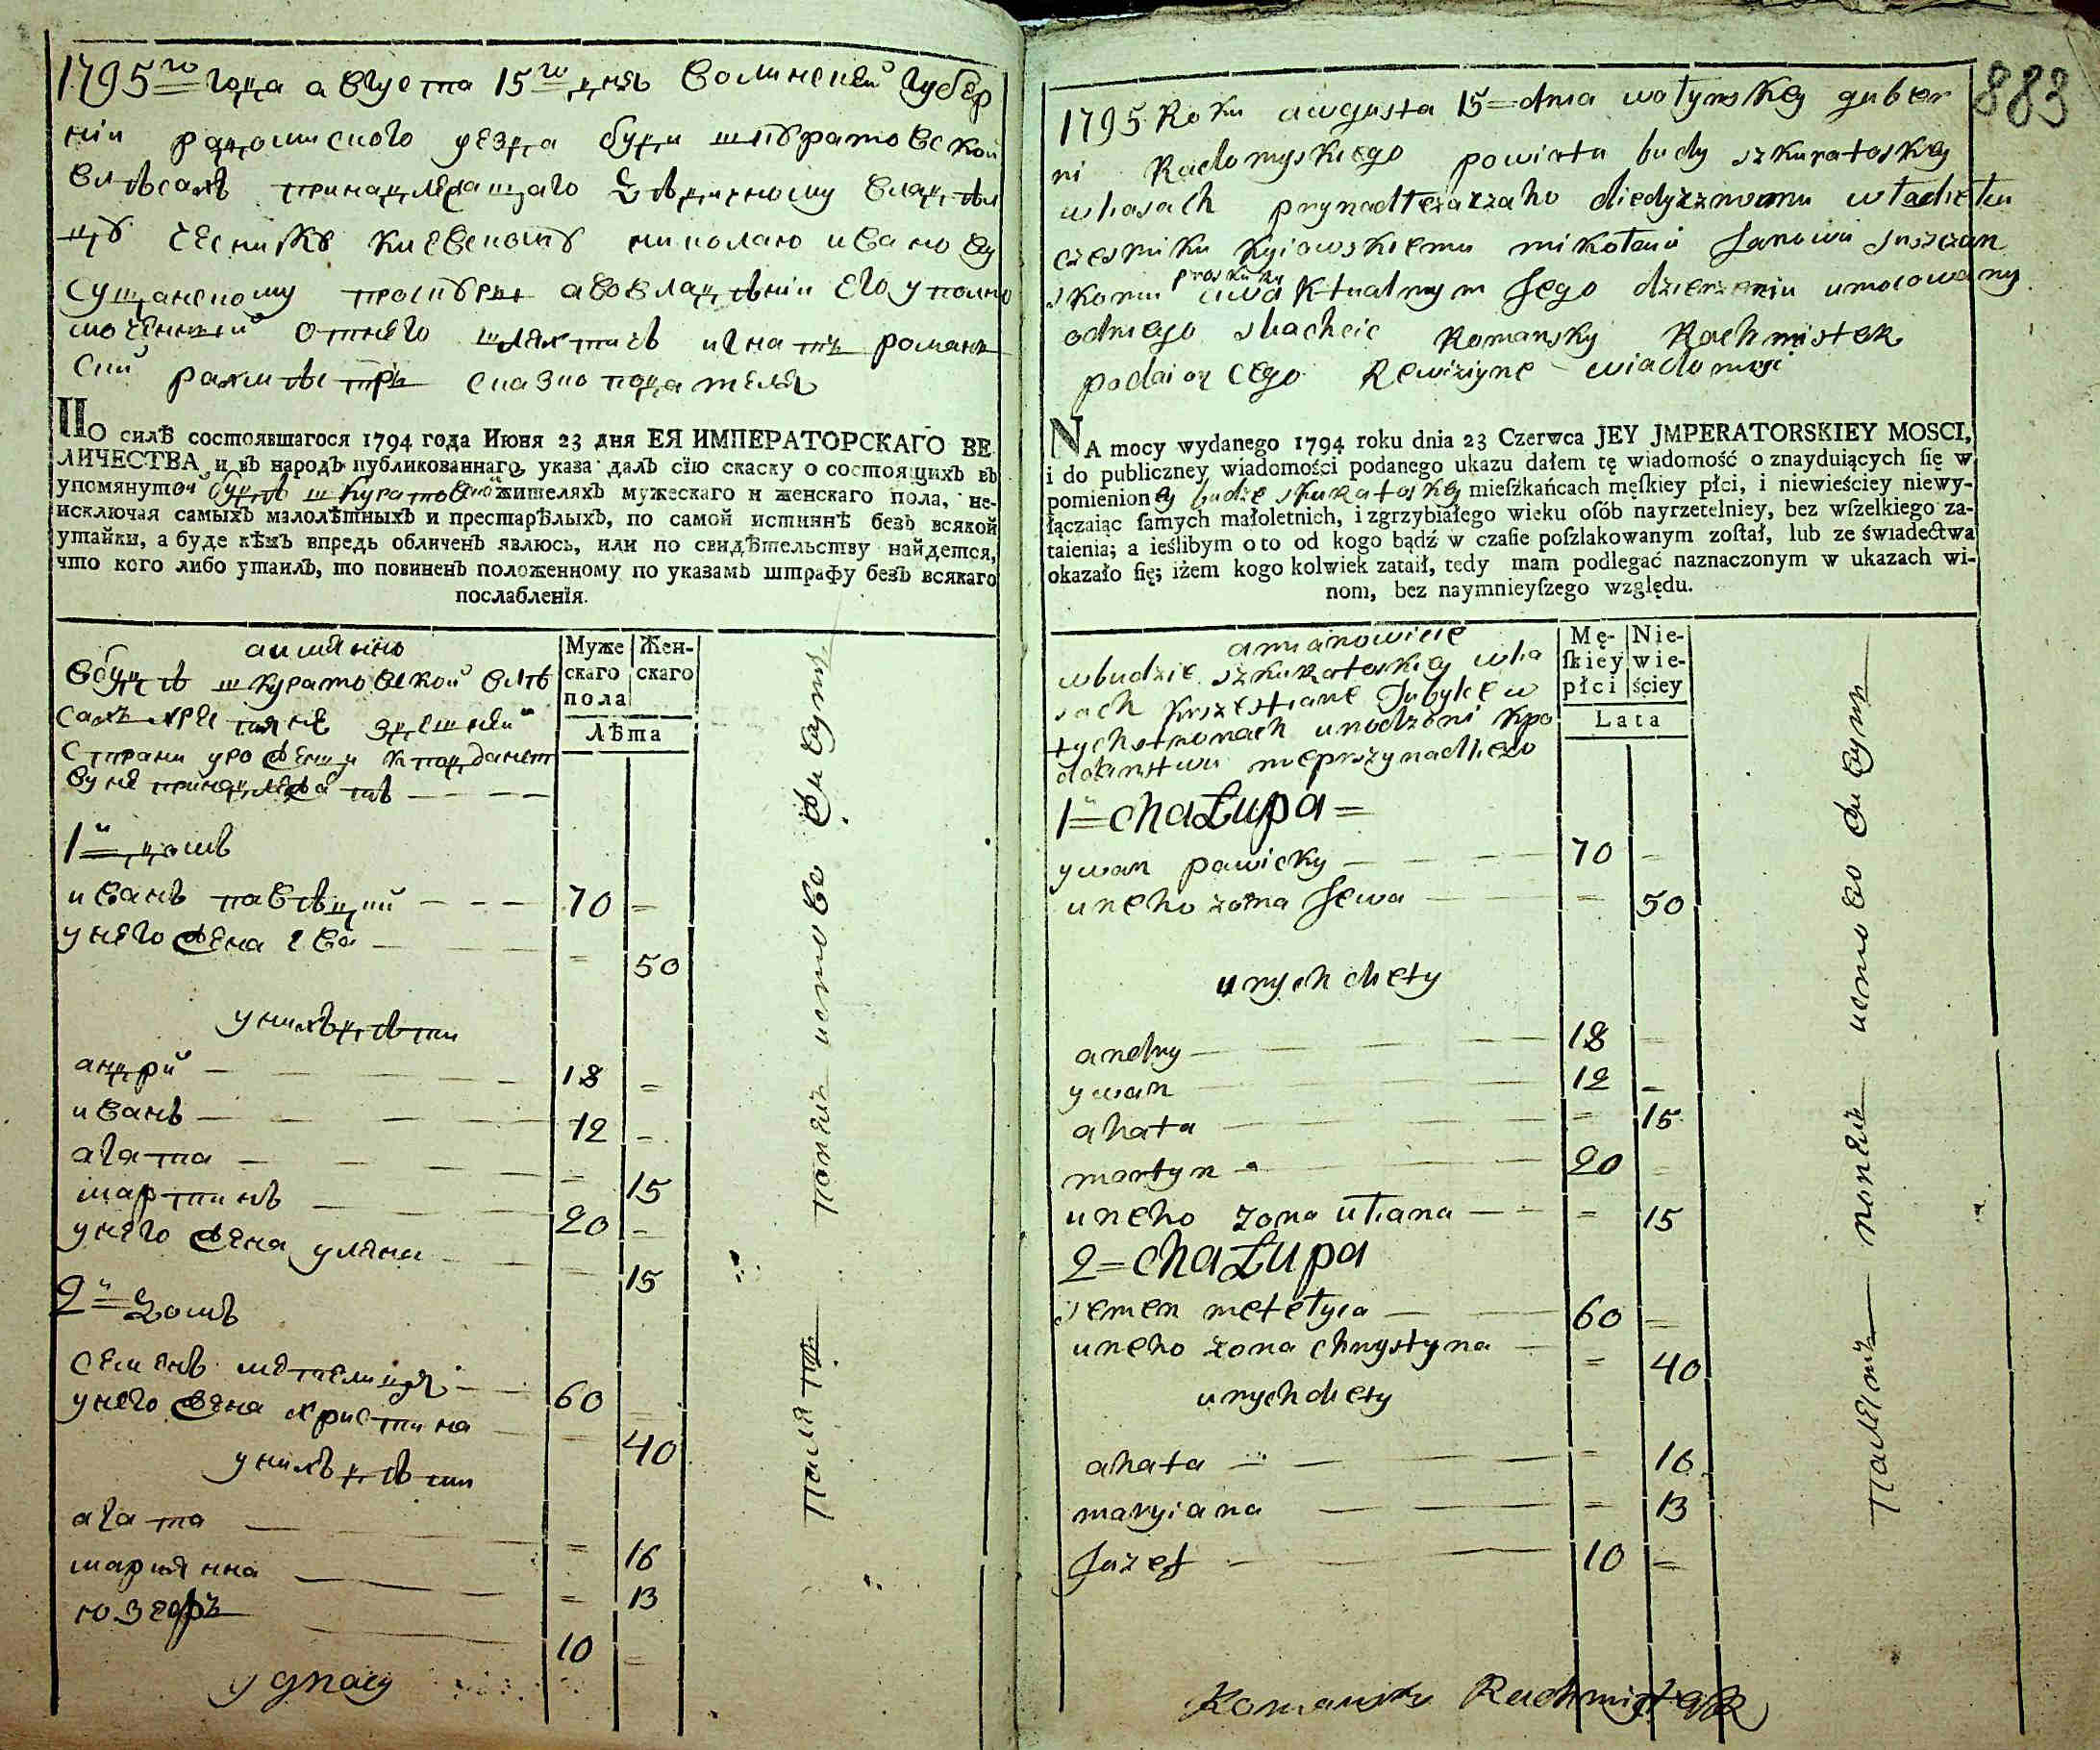 1795го года августа 15го дня волинской губер
нїи радомиского уезда буди шкуратовской
влѣсахъ принадлежащаго дѣдичному владѣл
цу чеснику киевскому николаю ивановy
сущанскому проскуры авовладѣнїи его уполно
моченний отнего шляхтичь игнатъ романъ
ский рахмѣстръ сказкоподателя
ПО силѣ состоявшагося 1794 года Июня 23 дня ЕЯ ИМПЕРАТОРСКАГО ВЕ-
ЛИЧЕСТВА и въ народъ публикованнаго, указа далъ сїю скаску о состоящихъ въ
упомянутой будѣ шкуратовской жителяхъ мужескаго и женскаго пола, не-
исключая самыхъ малолѣтныхъ и престарѣлыхъ, по самой истиннѣ безъ всякой
утайки, а буде кѣмъ впредь обличенъ явлюсь, или по свидѣтельству найдется,
что кого либо утаилъ, то повиненъ положенному по указамъ штрафу безъ всякаго
послабленїя.
аимянно
вбудѣ шкуратовской влѣ
сахъ хрестияне здешней
сторани урожении кподданст
ву не принадлежатъ
Муже
скаго
пола
Жен-
скаго
Лѣта
1й домъ
иванъ павѣцкий 70 =
унего жена ева = 50
унихъ дѣти
андрй 18 =
иванъ 12 =
агата = 15
мартинъ 20 =
унего жена уляна = 15
2й домъ
семенъ метелиця 60 =
унего жена христина = 40
унихъ дѣти
агата = 16
мариянна = 13
юзефъ 10 =
ygnacy
883
1795 Roku awgusta 15 = dnia wołynskey guber
ni Radomyskiego powiatu budy szkuratoskey
whasach prynadłeżaczaho diedyzznomu władiełu
czesniku kyiowskiemu mikołaiu Janowu suszczan
skomu proskury uwaktualnym Jego dzierżeniu umocowany
odniego slachcic Romansky Rachmistek
podaiącego Rewiziyne wiadomości
NA mocy wydanego 1794 roku dnia 23 Czerwca JEY JMPERATORSKIEY MOSCI,
i do publiczney wiadomości podanego ukazu dałem tę wiadomość o znayduiących się w
pomienioney budzie skuratoskey mieſzkańcach męſkiey płci, i niewieściey niewy-
łączaiąc ſamych małoletnich, i zgrzybiałego wieku oſób nayrzetelniey, bez wſzelkiego za-
taienia; a ieślibym o to od kogo bądź w czaſie poſzlakowanym zoſtał, lub ze świadectwa
okazało ſię; iżem kogo kolwiek zataił, tedy mam podlegać naznaczonym w ukazach wi-
nom, bez naymnieyſzego względu.
amianowicie
wbudzie szkuratoskiey wła
sach krszestiane Jubylce w
tychstronach urodzeni kpo
ddanstwu nieprszynadleżo
Mę-
ſkiey
płci
Nie-
wie-
ściey
Lata
1= chaŁupa =
ywan pawicky 70 =
uneho żona Jewa = 50
unych diety
andry 18 =
ywan 12 =
ahata = 15
martyn 20 =
uneho zona ułiana = 15
2= chaŁupa
semen metełyca 60 =
uneho żona chrystyna = 40
unych diety
ahata = 16
maryiana = 13
Juzef 10 =
Romansky Rachmistek